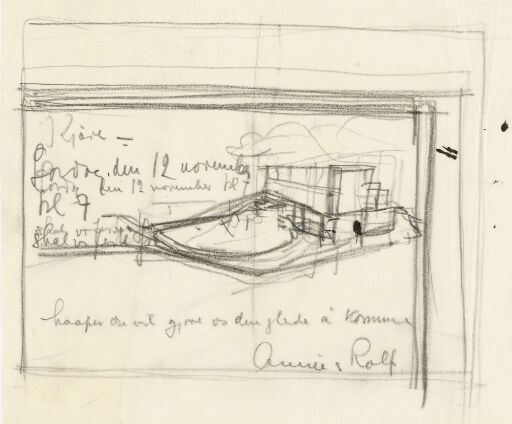 Kjære –
Lørdag den 12 november
lørdag den 12 november kl 7
kl 7
skal vi
skal vi
haaper du vil gjøre os den glede å komme
Annie & Rolf